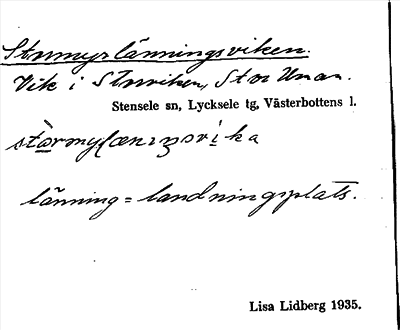 Stormyrlänningsviken.
Vik i Storviken, Stor Uman.
Stensele sn, Lycksele tg, Västerbottens l.
länning = landningsplats.
Lisa Lidberg 1935.